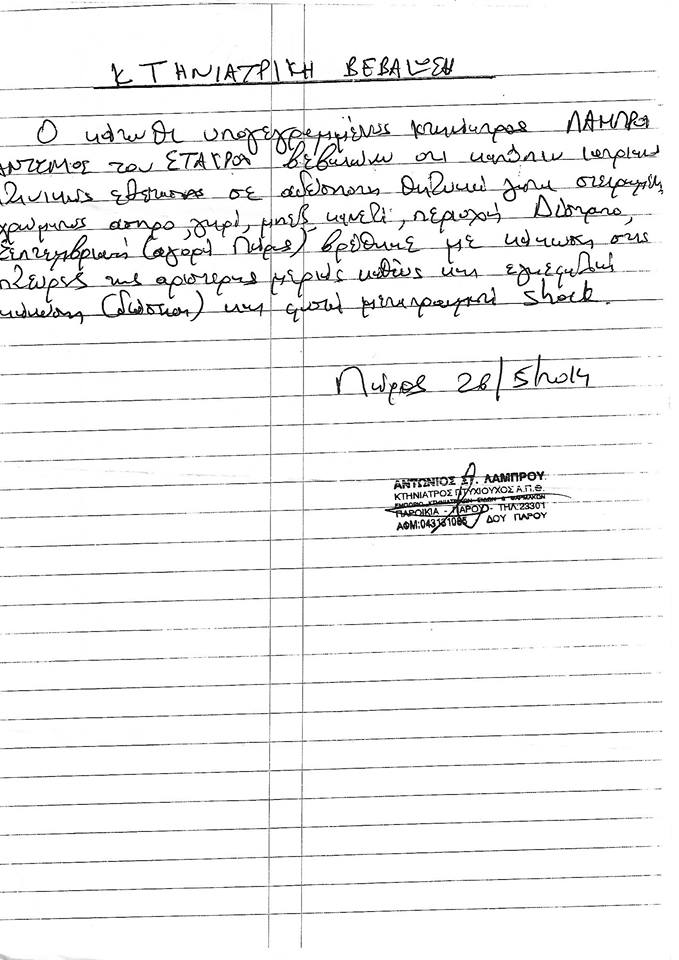 ΚΤΗΝΙΑΤΡΙΚΗ ΒΕΒΑΙΩΣΗ
Ο κάτωθι υπογεγραμμένος κτηνίατρος ΛΑΜΠΡΟ
ΑΝΤΩΝΙΟΣ του ΣΤΑΥΡΟΥ βεβαιώνω ότι κατόπιν ιατρικής
κλινικής εξέτασης σε αδέσποτη θηλυκιά γάτα στειρωμένη
χρώματος άσπρο, γκρί, μπεζ, καφετί, περιοχή Δίστρατο,
(αγορά Πάρος) βρέθηκε με κάκωση στις
πλευρές της αριστερής μεριάς καθώς και εγκεφαλική
κάκωση (διάσειση) και μετατραυματικό shock.
Πάρος 28/5/2014
ΑΝΤΩΝΙΟΣ ΣΤ. ΛΑΜΠΡΟΥ
ΚΤΗΝΙΑΤΡΟΣ ΠΤΥΧΙΟΥΧΟΣ Α.Π.Θ.
ΕΜΠΟΡΙΟ ΚΤΗΝΙΑΤΡΙΚΩΝ ΕΙΔΩΝ & ΦΑΡΜΑΚΩΝ
ΠΑΡΟΙΚΙΑ - ΠΑΡΟΥ - ΤΗΛ:23301
ΑΦΜ:043131085 ΔΟΥ ΠΑΡΟΥ